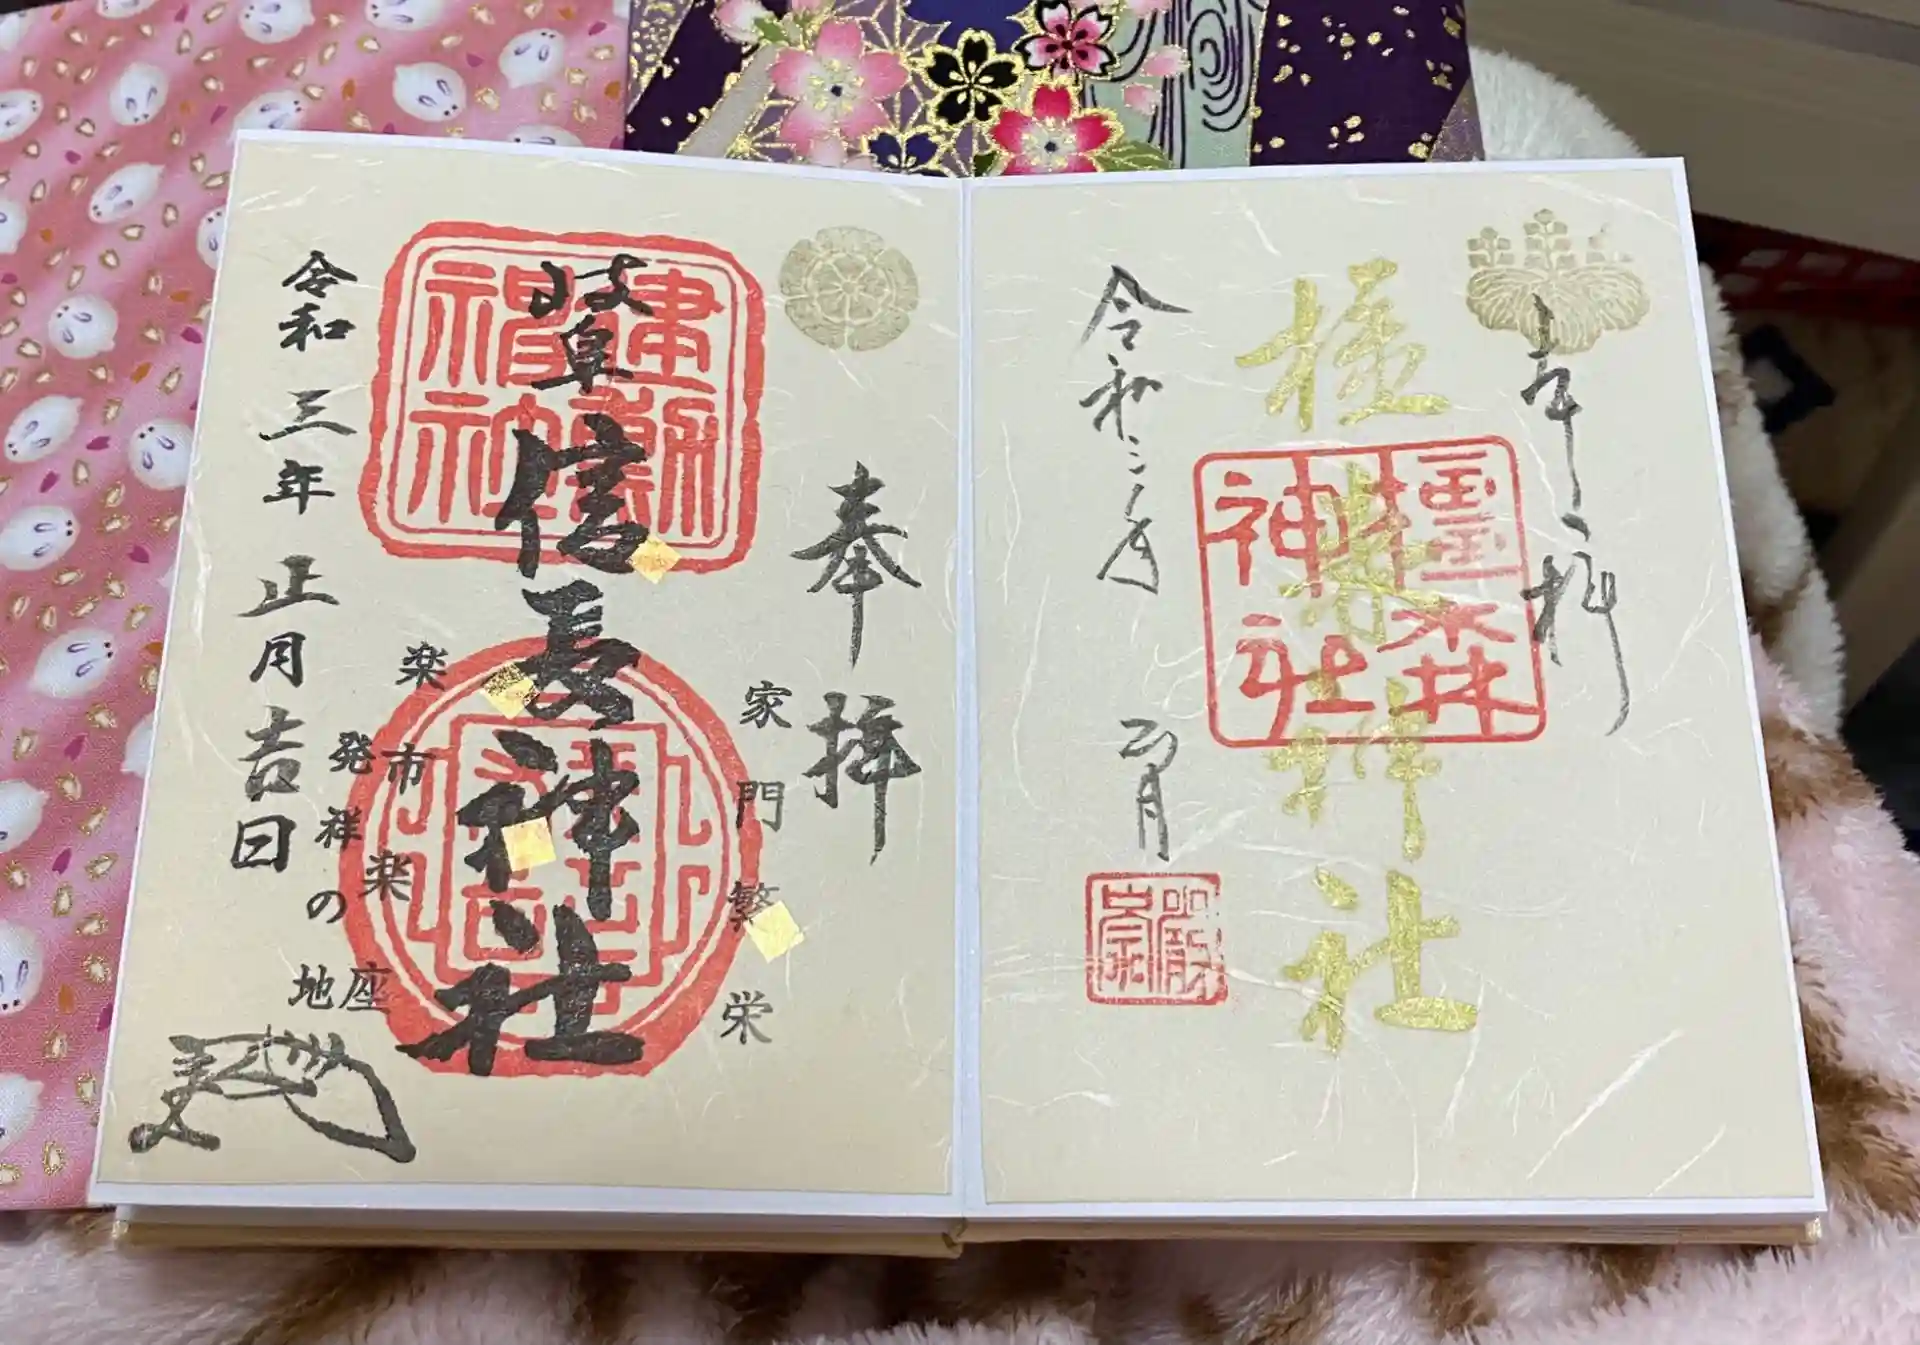 奉拝
橿森神社
橿森
神社
令和三年
正月
奉拝
家門繁栄
岐阜信長神社
建勲
神社
楽市楽座
発祥の地
令和三年正月吉日